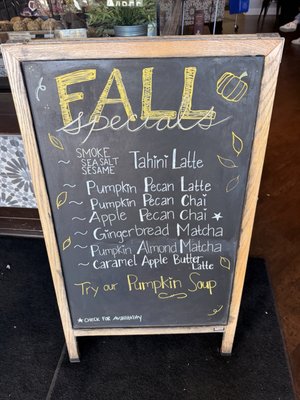 FALL
specials
~ SMOKE SEA SALT SESAME Tahini Latte
~ Pumpkin Pecan Latte
~ Pumpkin Pecan Chai
~ Apple Pecan Chai ★
~ Gingerbread Matcha
~ Pumpkin Almond Matcha
~ Caramel Apple Butter Latte
Try our Pumpkin Soup
★ CHECK FOR AVAILABILITY